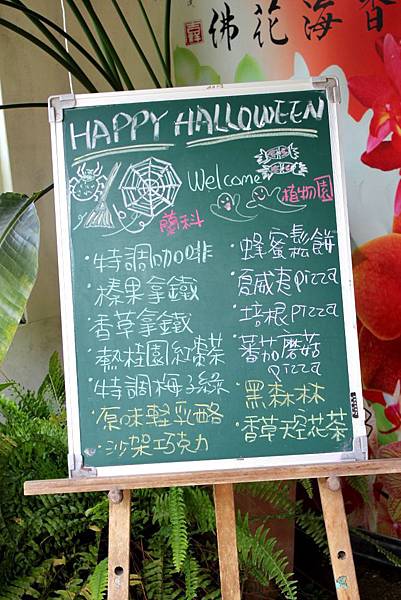 香
海
花
佛
HAPPY HALLOWEEN
Welcome
蘭科
植物園
·特調咖啡
·榛果拿鐵
·香草拿鐵
·熱桂園紅棗茶
·特調梅子綠
·原味輕乳酪
·沙架巧克力
·蜂蜜鬆餅
·夏威夷pizza
·培根pizza
·蕃茄蘑菇
pizza
·黑森林
·香草天空花茶